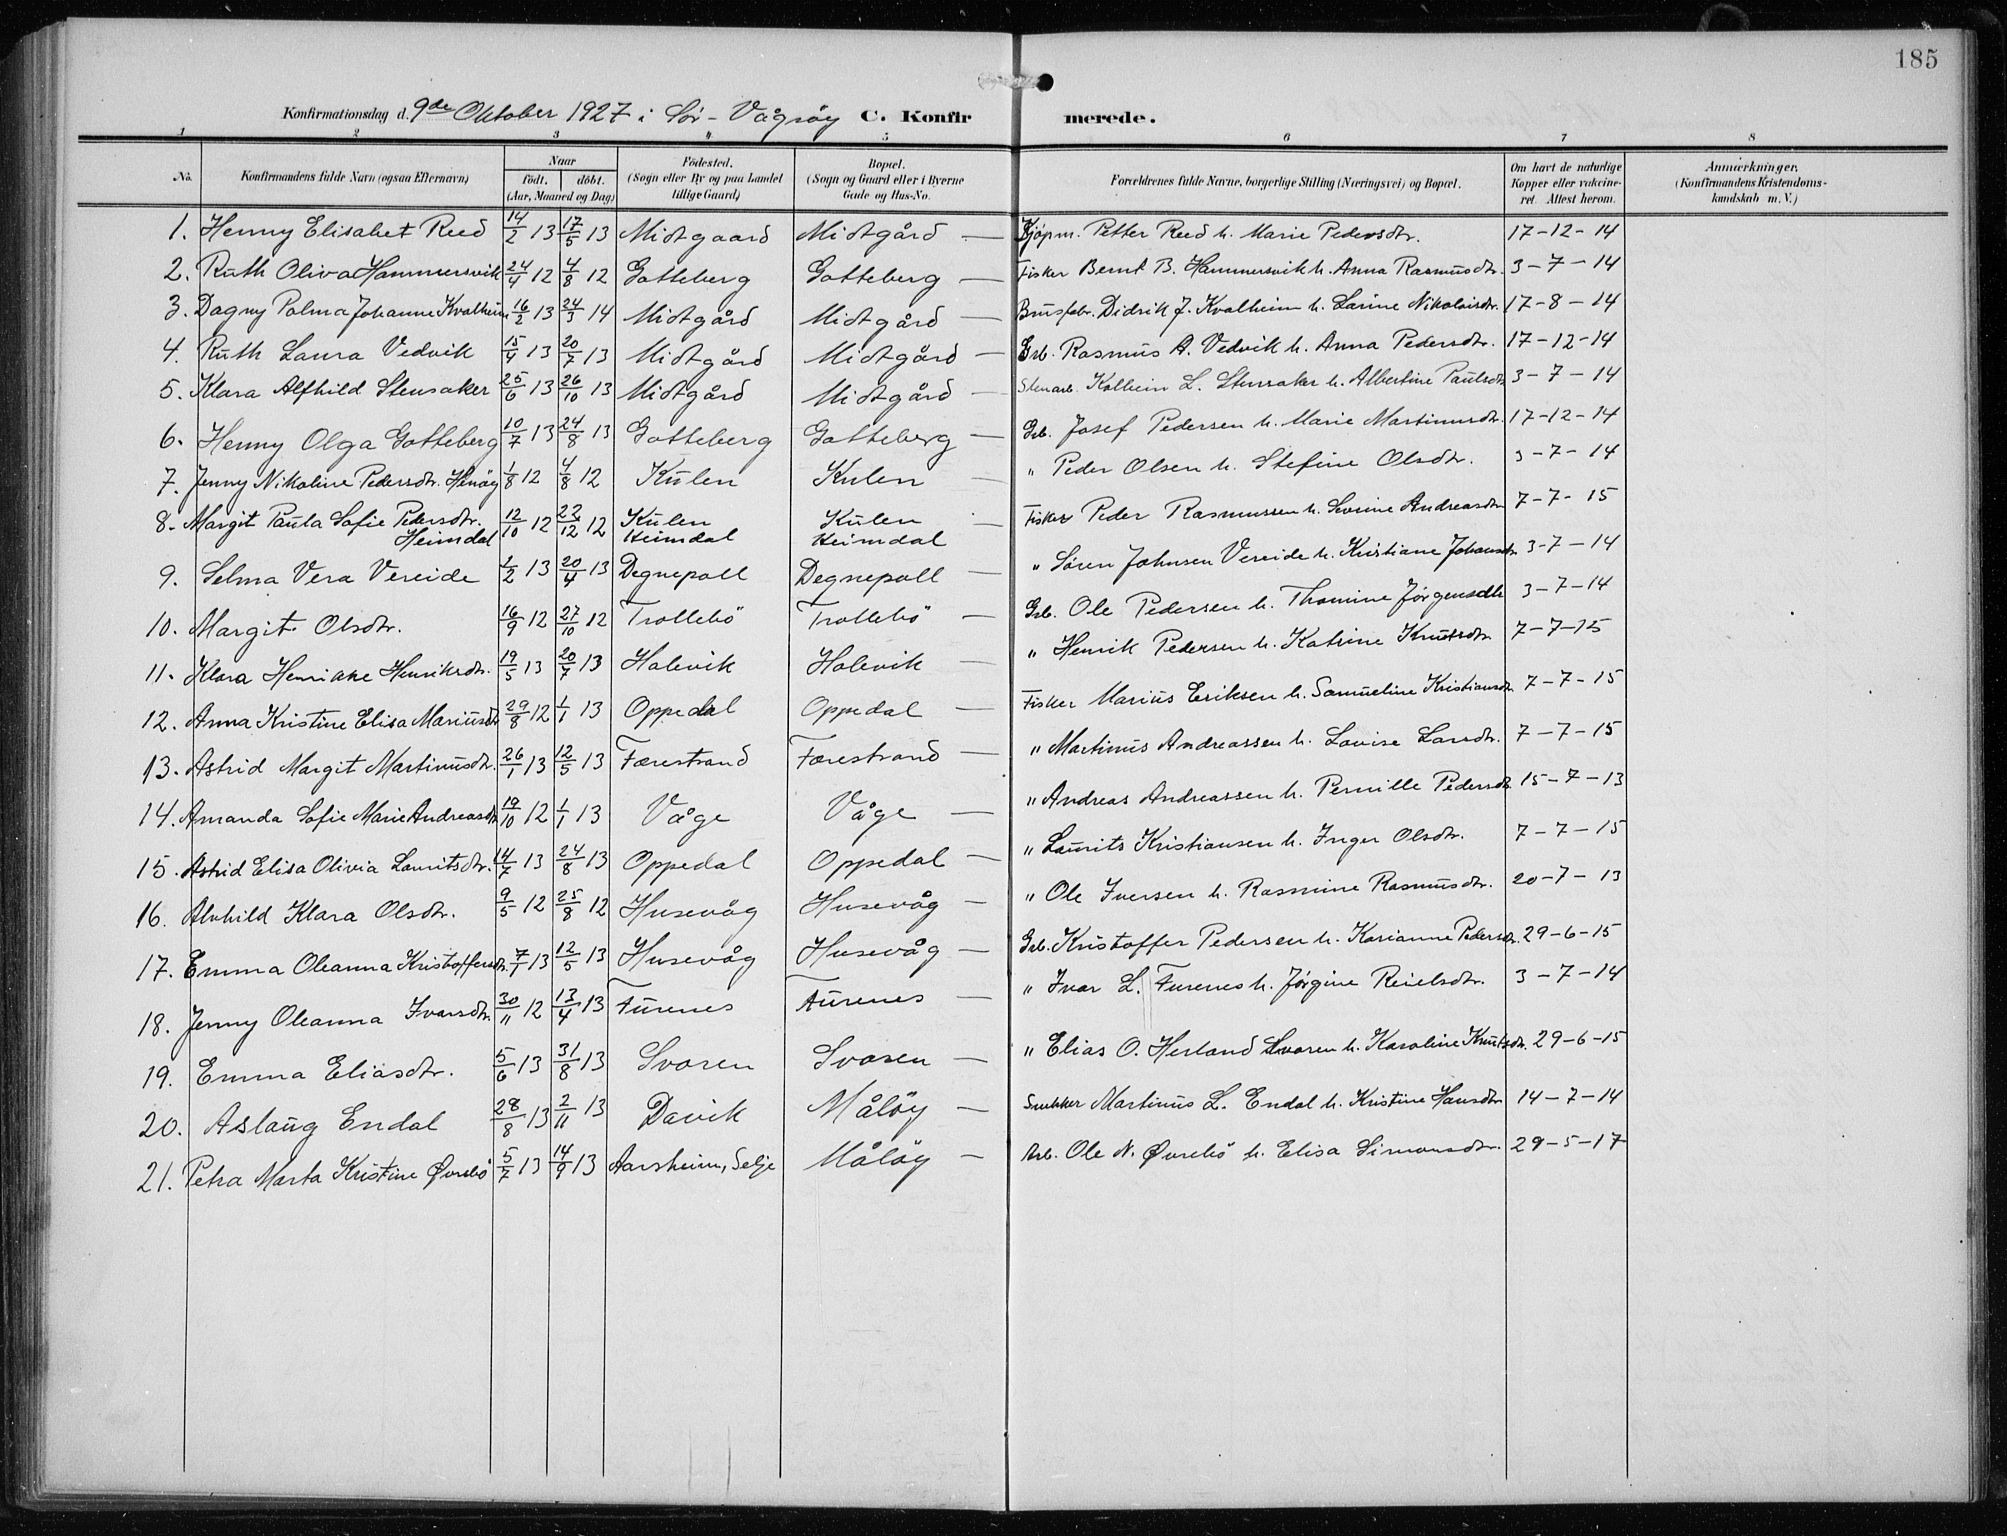 185
Konfirmationsdag d. 9de Oktober 1927 i Sör-Vågsöy C. Konfirmerede.
1 2 3 4 5 6 7 8
No. Konfirmandens fulde Navn (ogsaa Efternavn) Naar födt. döbt. (Aar, Maaned og Dag) Födested. (Sogn eller By og paa Landet tillige Gaard) Bopæl. (Sogn og Gaard eller i Byerne Gade og Hus-No. Forældrenes fulde Navne, borgerlige Stilling (Næringsvei) og Bopæl. Om havt de naturlige Kopper eller vakcineret. Attest herom. Anmærkninger. (Konfirmandens Kristendomskundskab m. V.)
1. Henny Elisabet Reed 14/2 13 17/5 13 Midtgaard Midtgård — Kjöpm. Petter Reed h. Marie Pedersdtr. 17-12-14
2. Ruth Oliva Hammersvik 24/4 12 4/8 12 Gotteberg Gotteberg — Fisker Bernt B. Hammersvik h. Anna Rasmusdtr. 3-7-14
3. Dagny Palma Johanne Kvalheim 16/2 13 24/3 14 Midtgård Midtgård — Brusfabr. Didrik J. Kvalheim h. Larine Nikolaisdtr. 17-8-14
4. Ruth Laura Vedvik 15/4 13 20/7 13 Midtgård Midtgård — Grb. Rasmus A. Vedvik h. Anna Pedersdtr. 17-12-14
5. Klara Alfhild Stensaker 25/6 13 26/10 13 Midtgård Midtgård — Stenarb. Kolbein L. Stensaker h. Albertine Paulsdtr 3-7-14
6. Henny Olga Gotteberg 10/7 13 24/8 13 Gotteberg Gotteberg — Grb. Josef Pedersen h. Marie Martinusdtr. 17-12-14
7. Jenny Nikoline Pedersdtr. Henöy 1/8 12 4/8 12 Kulen Kulen — " Peder Olsen h. Stefine Olsdtr. 3-7-14
8. Margit Paula Sofie Pedersdtr. Heimdal 12/10 12 22/12 12 Kulen Heimdal Kulen Heimdal — Fisker Peder Rasmussen h. Severine Andreasdtr 7-7-15
9. Selma Vera Vereide 1/2 13 20/4 13 Degnepoll Degnepoll — " Sören Johnsen Vereide h. Kristiane Johansdtr 3-7-14
10. Margit Olsdtr. 16/9 12 27/10 12 Trollebö Trollebö — Grb. Ole Pedersen h. Thomine Jörgensdtr 3-7-14
11. Klara Henrikke Henriksdtr. 19/5 13 20/7 13 Holevik Holevik — " Henrik Pedersen h. Katrine Knutsdtr 7-7-15
12. Anna Kristine Elisa Mariusdtr 29/8 12 1/1 13 Oppedal Oppedal — Fisker Marius Eriksen h. Samueline Kristiansdtr 7-7-15
13. Astrid Margit Martinusdtr. 26/1 13 12/5 13 Færestrand Færestrand — " Martinus Andreassen h. Lovise Larsdtr. 7-7-15
14. Amanda Sofie Marie Andreasdtr 19/10 12 1/1 13 Våge Våge — " Andreas Andreassen h. Pernille Pedersdtr 15-7-13
15. Astrid Elisa Olivia Lauritsdtr. 14/7 13 24/8 13 Oppedal Oppedal — " Laurits Kristiansen h. Inger Olsdtr. 7-7-15
16. Alvhild Klara Olsdtr. 9/5 12 25/8 12 Husevåg Husevåg — " Ole Iversen h. Rasmine Rasmusdtr. 20-7-13
17. Emma Oleanna Kristoffersdtr. 7/1 13 12/5 13 Husevåg Husevåg — Grb. Kristoffer Pedersen h. Karianne Pedersdtr. 29-6-15
18. Jenny Oleanna Ivarsdtr. 30/11 12 13/4 13 Furenes Furenes — " Ivar L. Furenes h. Jörgine Reielsdtr. 3-7-14
19. Emma Eliasdtr. 5/6 13 31/8 13 Svoren Svoren — " Elias O. Hesland Svoren h. Karoline Knutsdtr. 29-6-15
20. Aslaug Endal 28/8 13 2/11 13 Davik Målöy — Snekker Martinus L. Endal h. Kristine Hansdtr 14-7-14
21. Petra Marta Kristine Øvrebö 5/7 13 14/9 13 Aarsheim, Selje Målöy — Arb. Ole N. Øvrebö h. Elisa Simonsdtr. 29-5-17